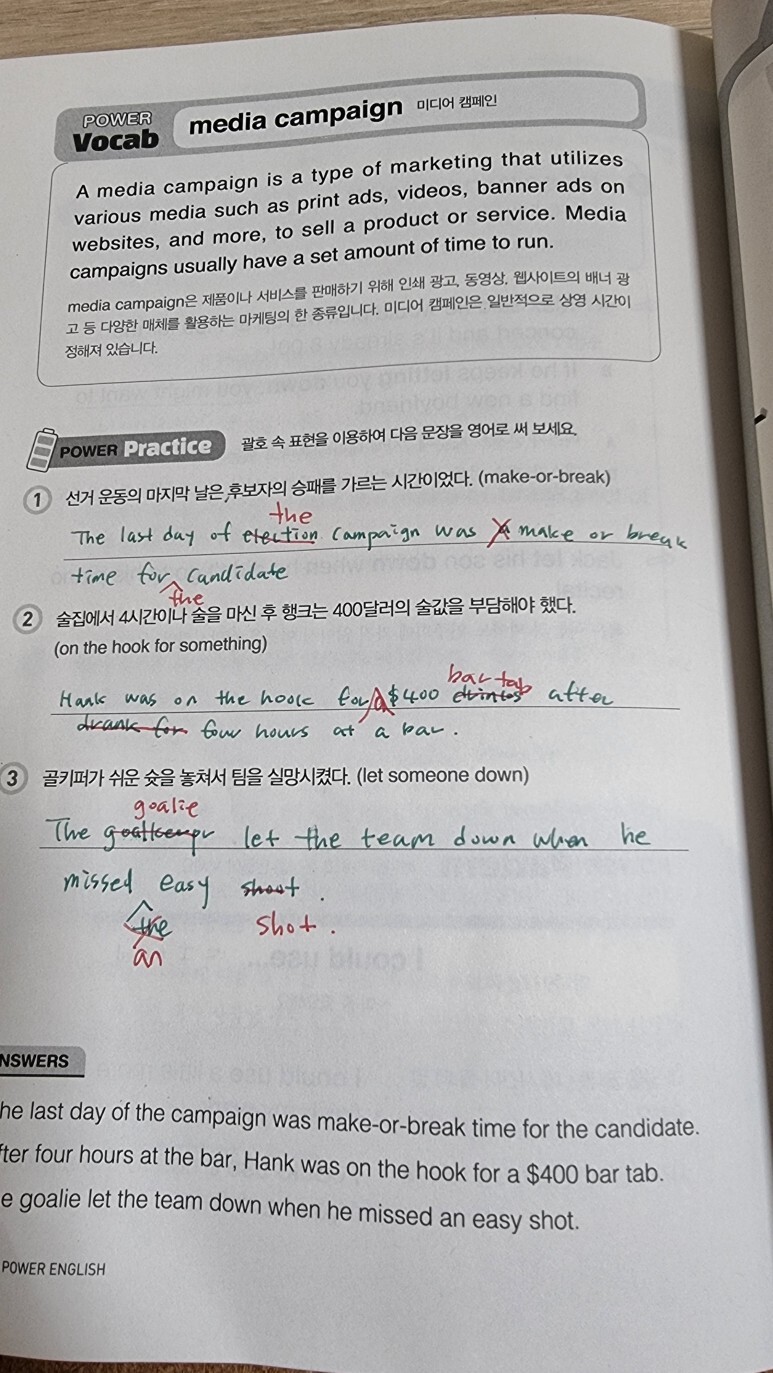 POWER
Vocab
media campaign 미디어 캠페인
A media campaign is a type of marketing that utilizes
various media such as print ads, videos, banner ads on
websites, and more, to sell a product or service. Media
campaigns usually have a set amount of time to run.
media campaign은 제품이나 서비스를 판매하기 위해 인쇄 광고, 동영상, 웹사이트의 배너 광
고 등 다양한 매체를 활용하는 마케팅의 한 종류입니다. 미디어 캠페인은 일반적으로 상영 시간이
정해져 있습니다.
POWER Practice 괄호 속 표현을 이용하여 다음 문장을 영어로 써 보세요.
1 선거 운동의 마지막 날은 후보자의 승패를 가르는 시간이었다. (make-or-break)
the
The last day of election campaign was a make or break
time for candidate
the
2 술집에서 4시간이나 술을 마신 후 행크는 400달러의 술값을 부담해야 했다.
(on the hook for something)
bar tab
Hank was on the hook for a $400 drinks after
drank for four hours at a bar.
3 골키퍼가 쉬운 슛을 놓쳐서 팀을 실망시켰다. (let someone down)
goalie
The let the team down when he
missed easy shoot.
the shot.
an
NSWERS
he last day of the campaign was make-or-break time for the candidate.
fter four hours at the bar, Hank was on the hook for a $400 bar tab.
e goalie let the team down when he missed an easy shot.
POWER ENGLISH